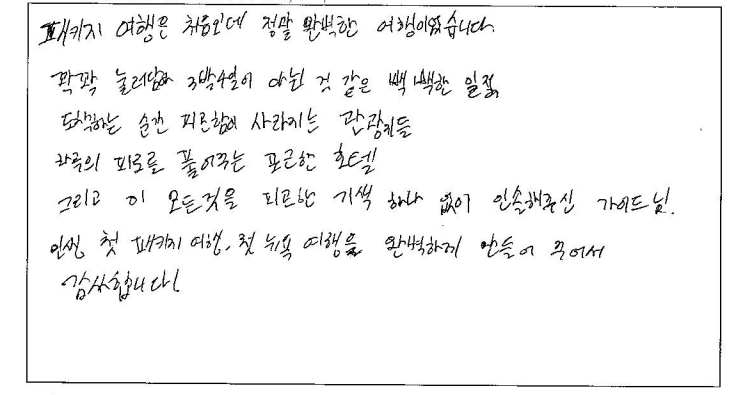 패키지 여행은 처음인데 정말 완벽한 여행이었습니다.
꽉꽉 눌러담아 3박4일이 아닌 것 같은 빽빽한 일정
도착하는 순간 피곤함이 사라지는 관광지들
하루의 피로를 풀어주는 포근한 호텔
그리고 이 모든것을 피곤한 기색 하나 없이 인솔해주신 가이드님.
인생 첫 패키지 여행, 첫 뉴욕 여행을 완벽하게 만들어 주어서
감사합니다!